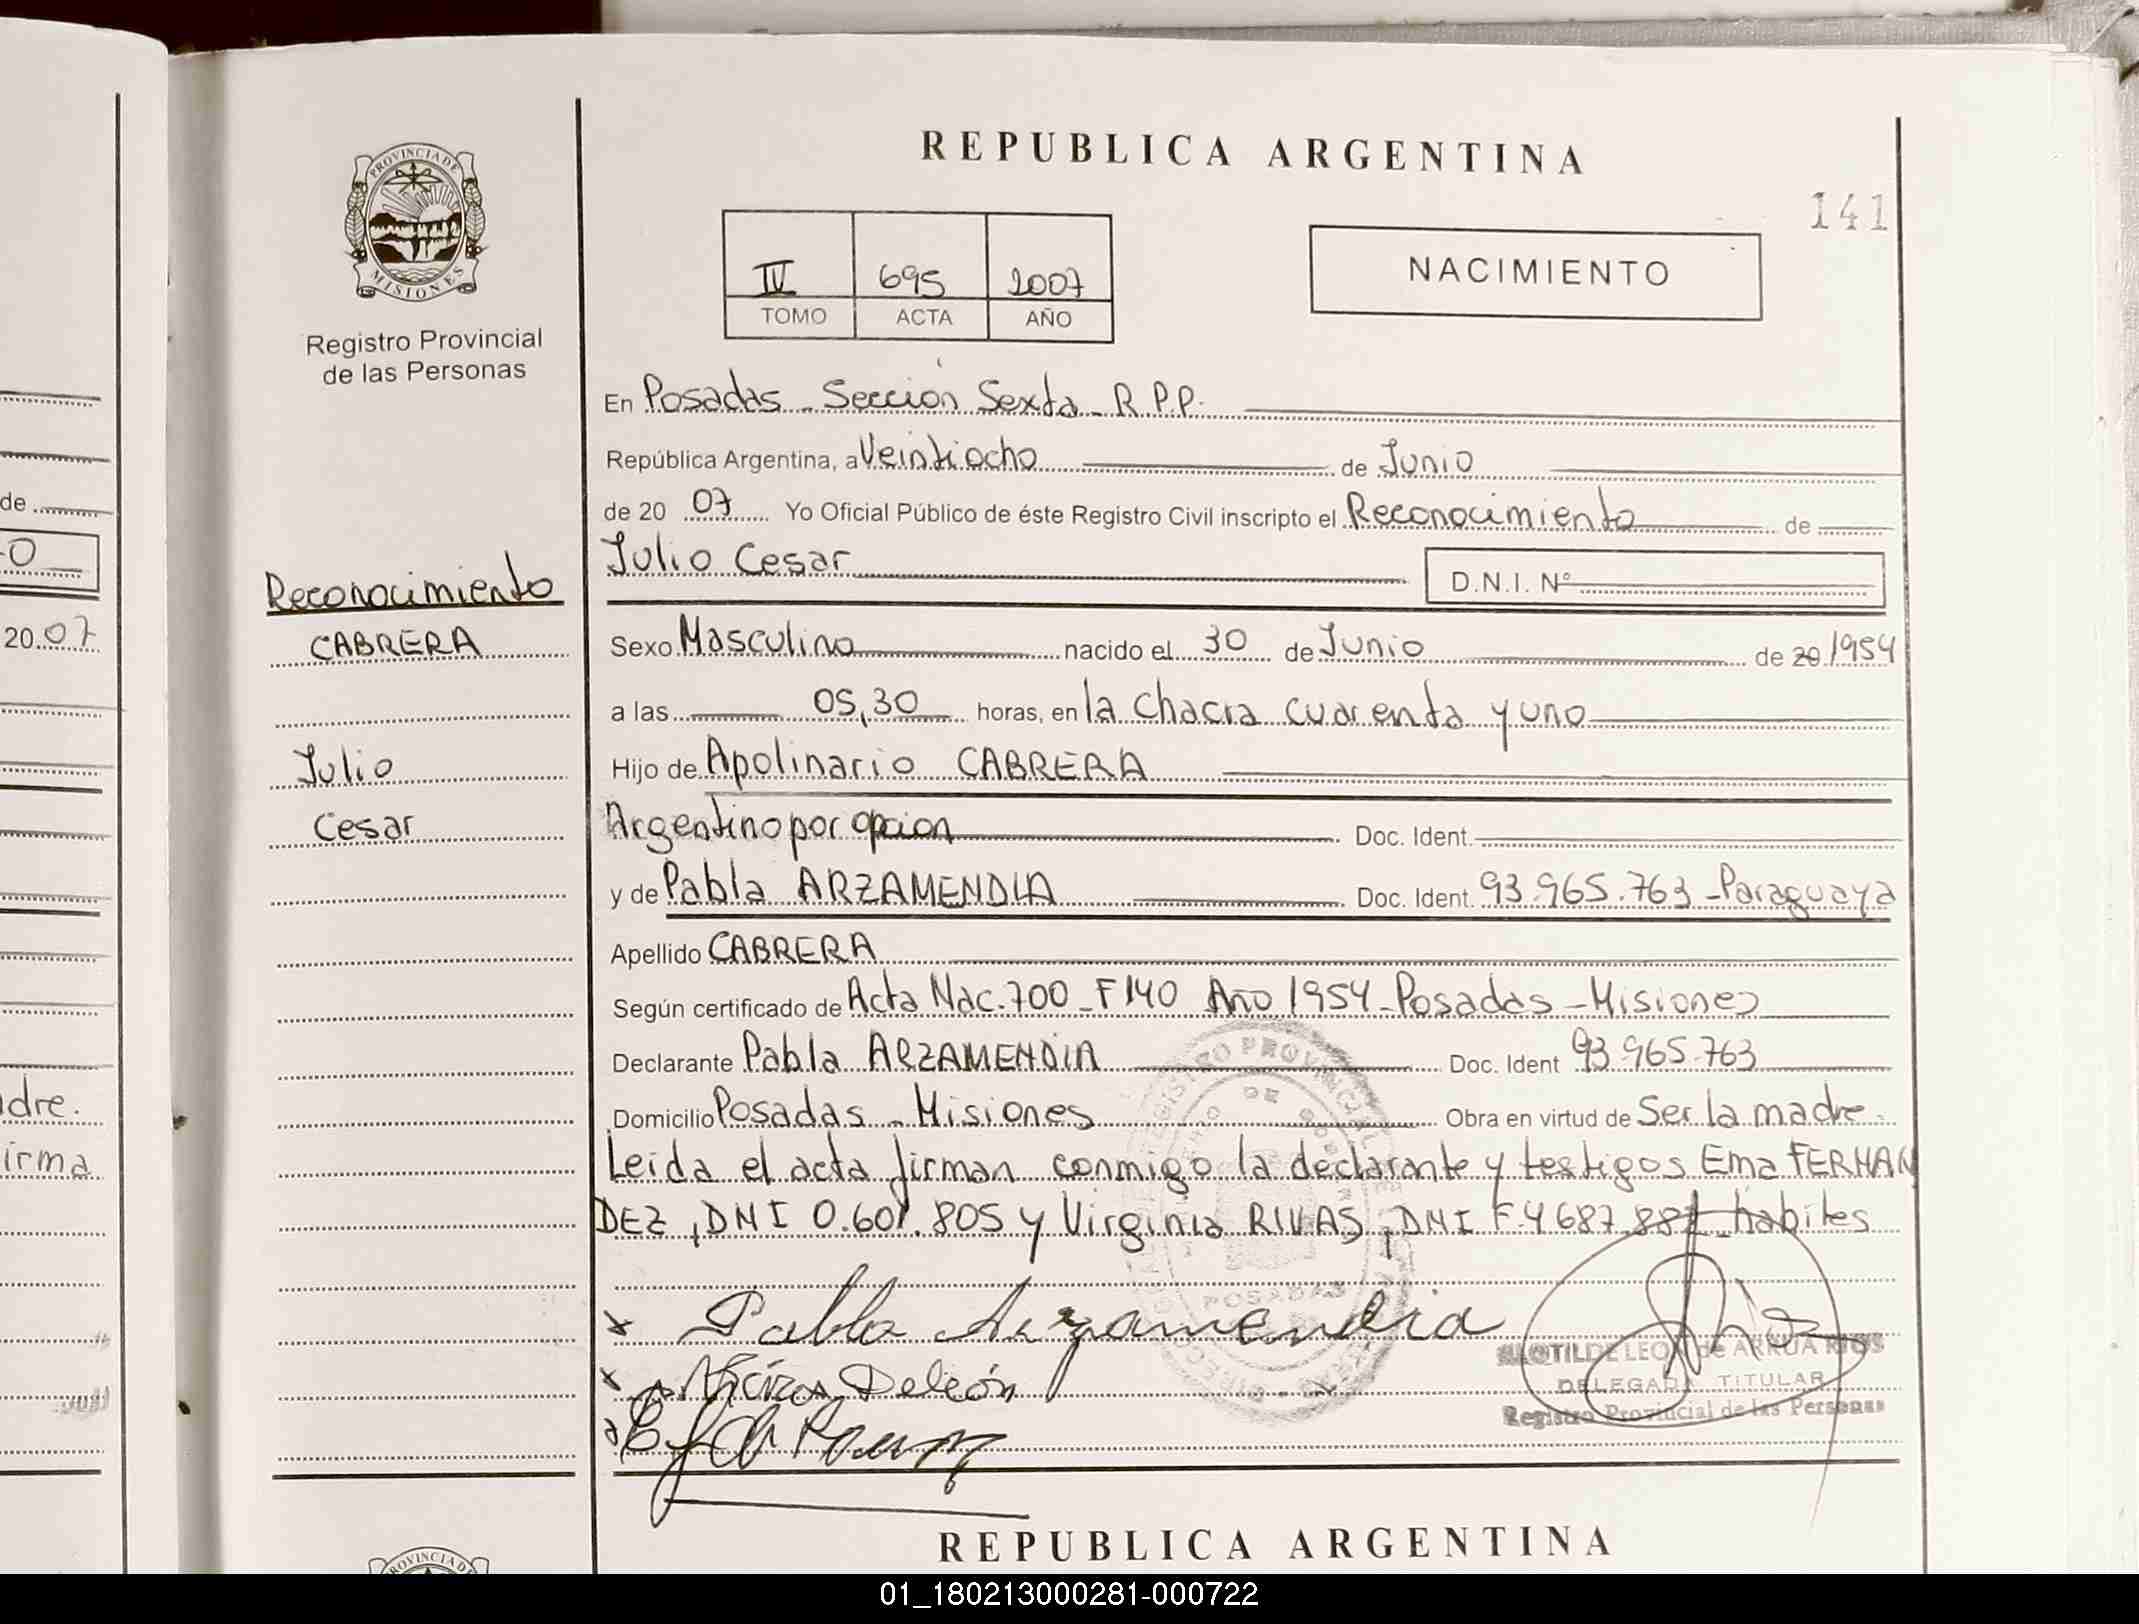 REPUBLICA ARGENTINA
141
PROVINCIA DE
MISIONES
Registro Provincial
de las Personas
IV 695 2007
TOMO ACTA AÑO
NACIMIENTO
En Posadas - Sección Sexta - R.P.P.
República Argentina, a Veintiocho de Junio
de 20 07 Yo Oficial Público de éste Registro Civil inscripto el Reconocimiento de
Julio Cesar D.N.I. Nº
Reconocimiento
CABRERA
Julio
Cesar
Sexo Masculino nacido el 30 de Junio de 20 1954
a las 05,30 horas, en la chacra cuarenta y uno
Hijo de Apolinario CABRERA
Argentino por opcion Doc. Ident.
y de Pabla ARZAMENDIA Doc. Ident. 93.965.763 - Paraguaya
Apellido CABRERA
Según certificado de Acta Nac. 700 - F 140 Año 1954 - Posadas - Misiones
Declarante Pabla ARZAMENDIA Doc. Ident 93.965.763
Domicilio Posadas - Misiones Obra en virtud de Ser la madre.
Leida el acta firman conmigo la declarante y testigos Ema FERNAN
DEZ, DNI 0.601.805 y Virginia RIVAS, DNI F.4687.881 habiles
Pabla Arzamendia
Deleón
CLOTILDE LEON de ARRUA RIOS
DELEGADA TITULAR
Registro Provincial de las Personas
POSADAS
de
0
20 07
adre.
irma
REPUBLICA ARGENTINA
PROVINCIA DE
01_180213000281-000722